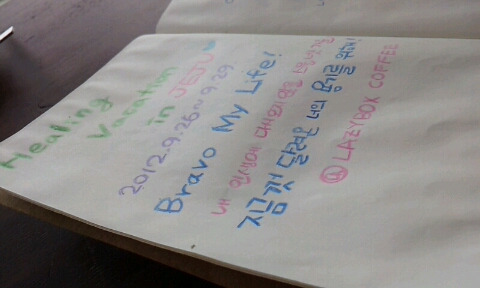 Healing
Vacation
in JEJU
2012.9.26~9.29
Bravo My Life!
내 인생에
지금껏 달려온 너의 용기를 위해!
@ LAZYBOX COFFEE